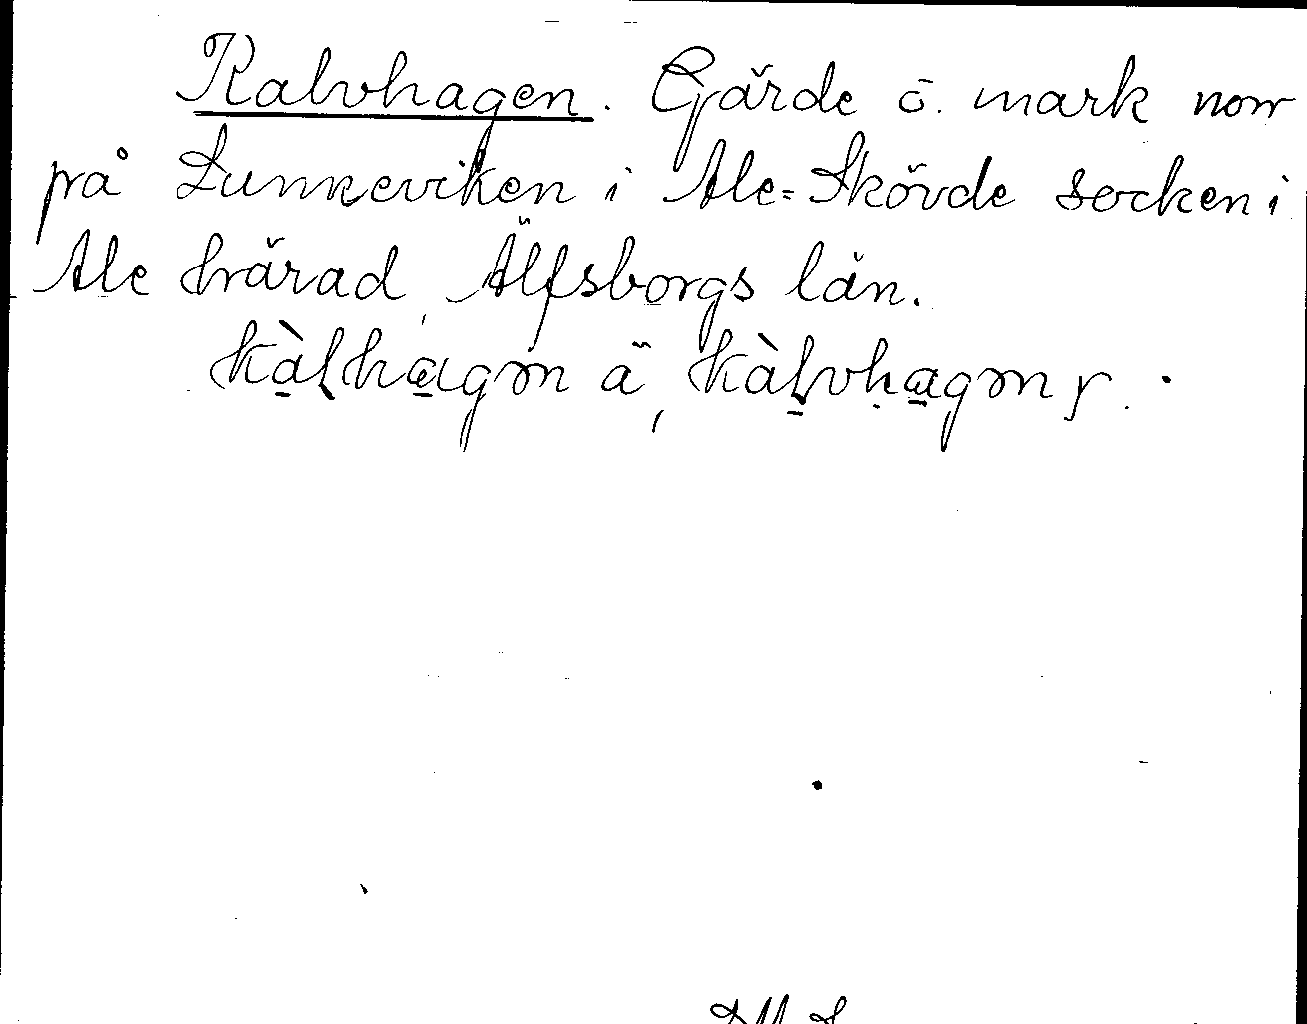 Kalvhagen. Gärde o. mark norr
på Lunneviken i Ale-Skövde socken i
Ale härad, Älfsborgs län.
kàlhagm ä, kàlvhagm